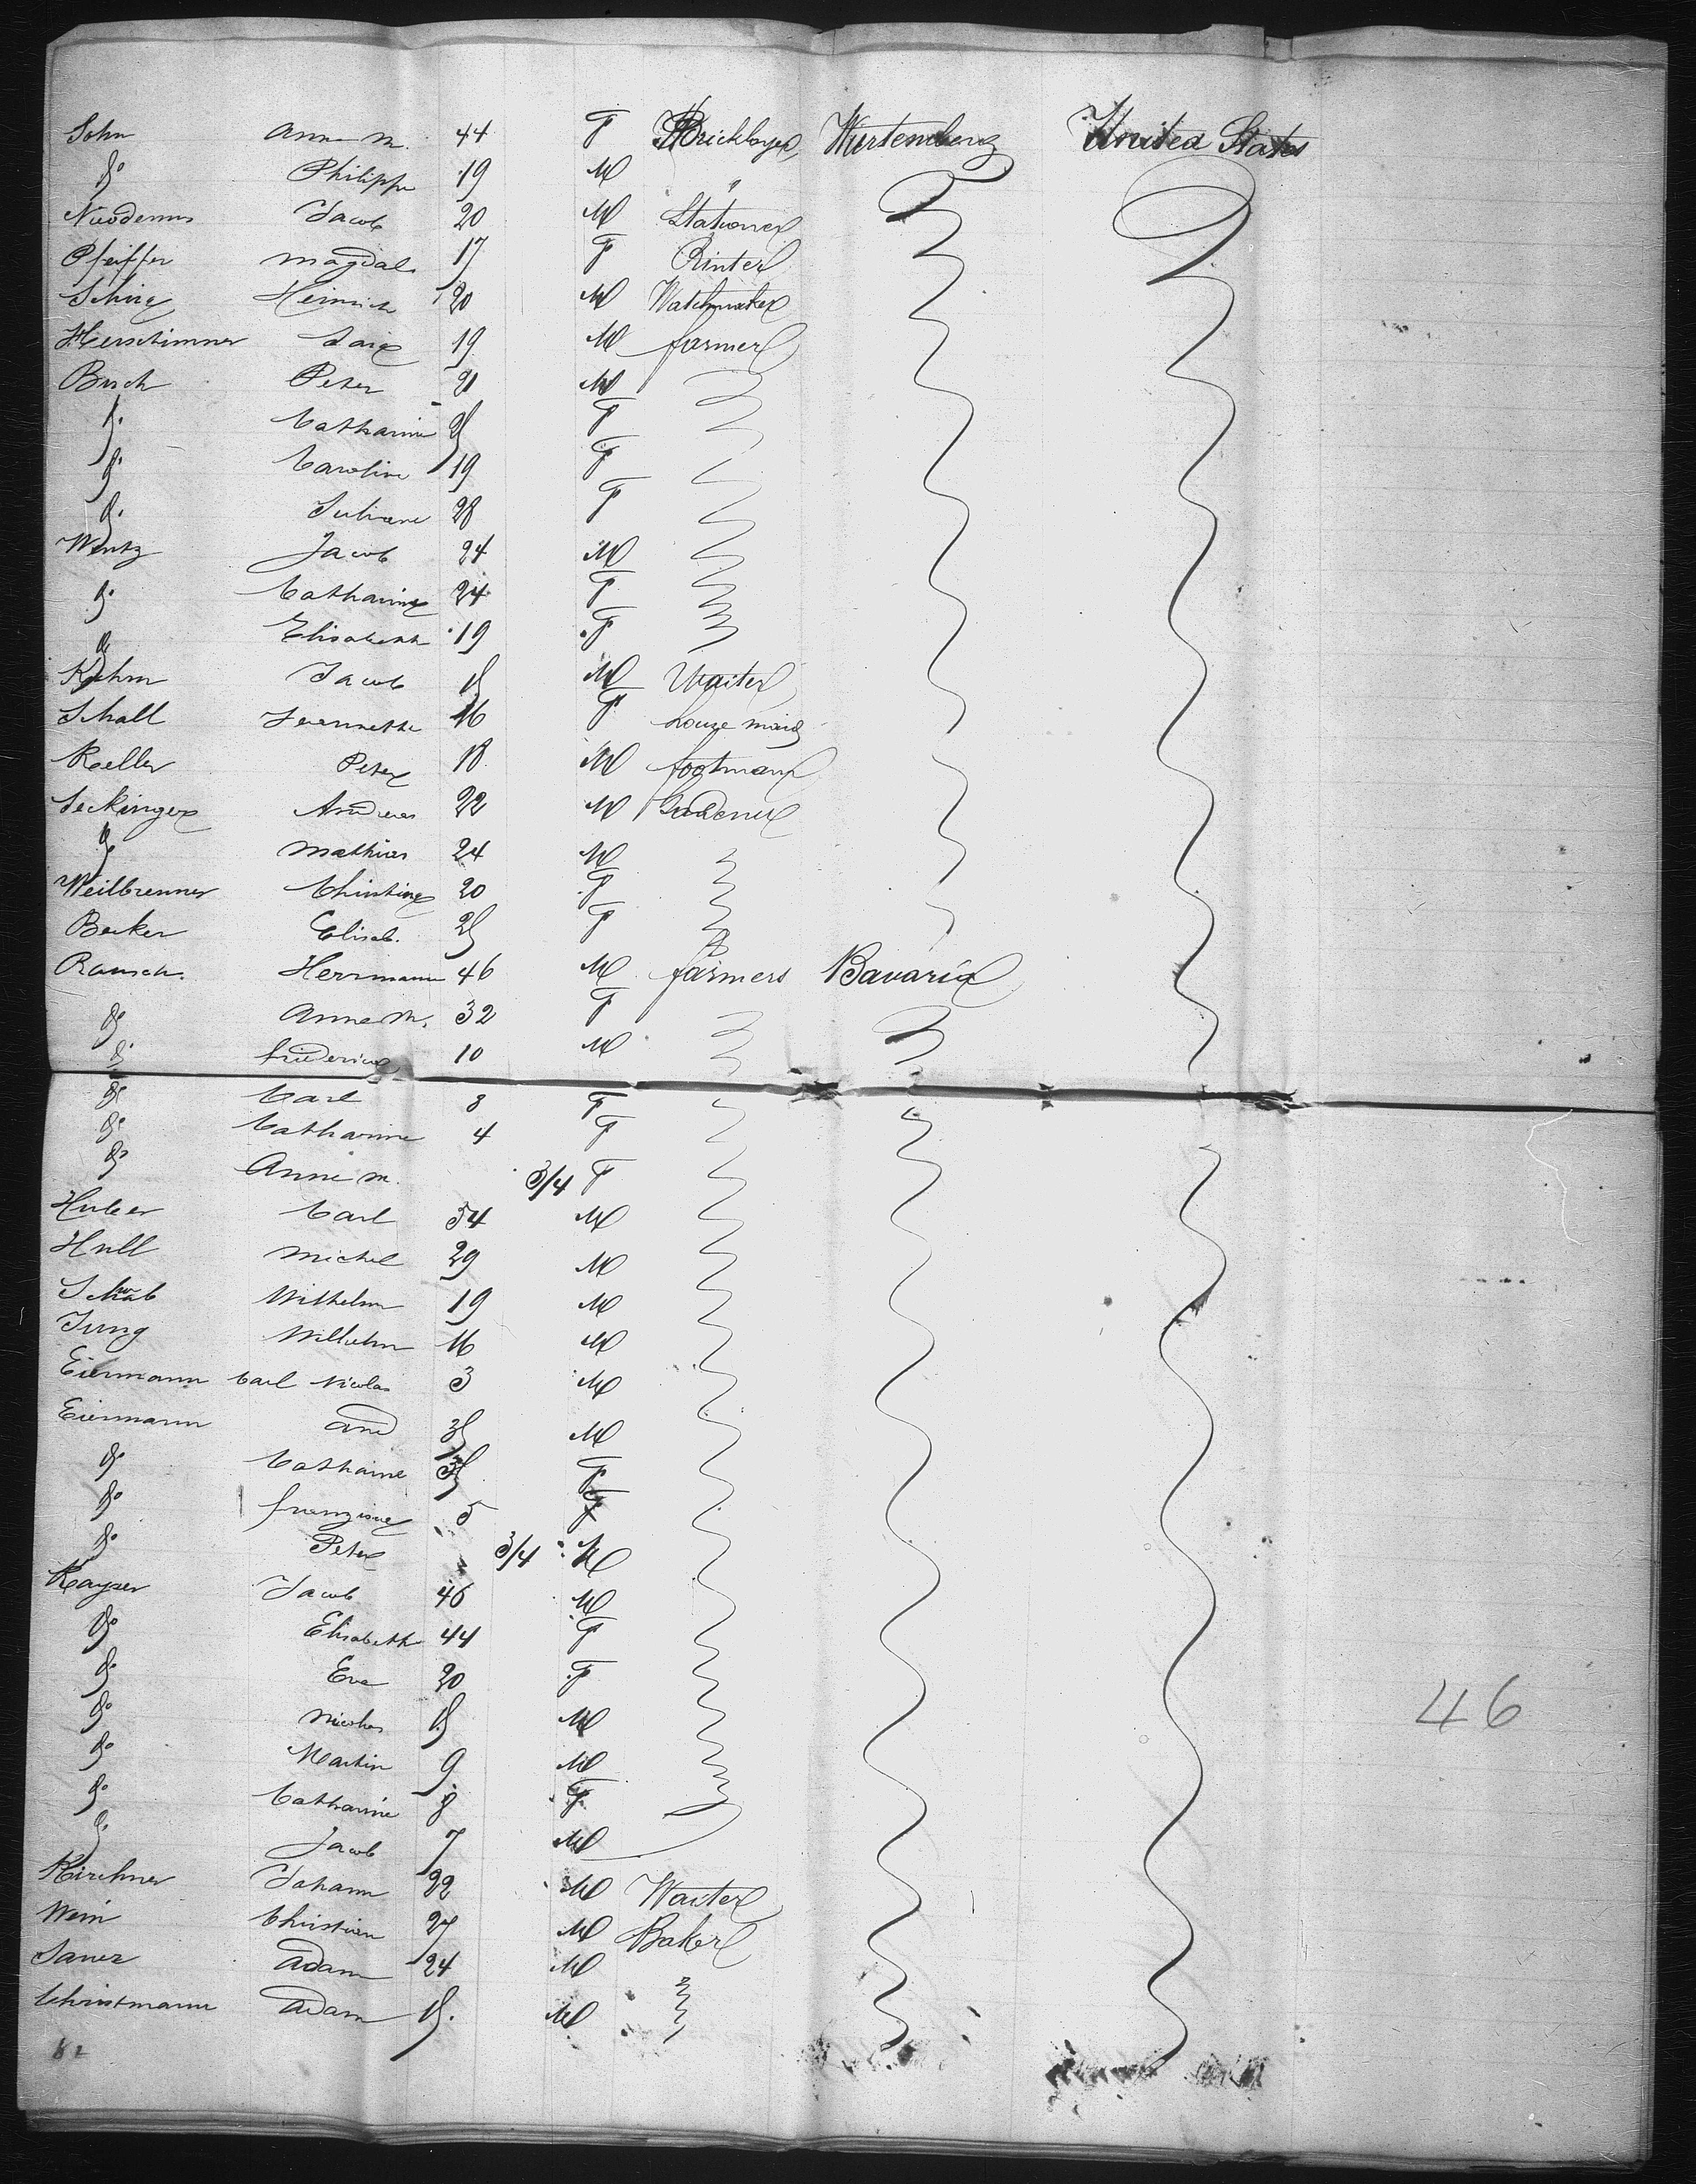 Sohn Anna M. 44 F Bricklayer Wurtemberg United States
do Philippe 19 M "
Nicodemus Jacob 20 M Stationer
Pfeiffer Magdal. 17 F Printer
Heinrich 20 M Watchmaker
19 M farmer
Busch Peter 21 M
do Catharine F
do Caroline 19 F
do Juliane 28 F
Wentz Jacob 24 M
do Catharine 24 F
do Elisabeth 19 F
Kehm Jacob M Waiter
Schall Jeannette 16 F house maid
Koeller Peter 18 M footman
Seckinger Andreas 22 M Gardener
do Mathias 24 M
Weilbrenner Christine 20 F
Becker Elisab. 25 F
Rausch Herrmann 46 M farmers Bavaria
do Anna M. 32 F
do friederich 10 M
do Carl 8 F
do Catharine 4 F
do Anna M. 3/4 F
Huber Carl 54 M
Hull Michel 29 M
Schwab Wilhelm 19 M
Jung Wilhelm 16 M
Eiermann Carl Nicolas 3 M
Eiermann And 35 M
do Catharine F
do franziska 5 F
do Peter 3/4 M
Kayser Jacob 46 M
do Elisabeth 44 F
do Eva 20 F
do Nicolas M
do Martin 9 M
do Catharine 8 F
do Jacob 7 M
Kirchner Johann 22 M Waiter
Wein Christian 27 M Baker
Sauer Adam 24 M
Christmann Adam M
46